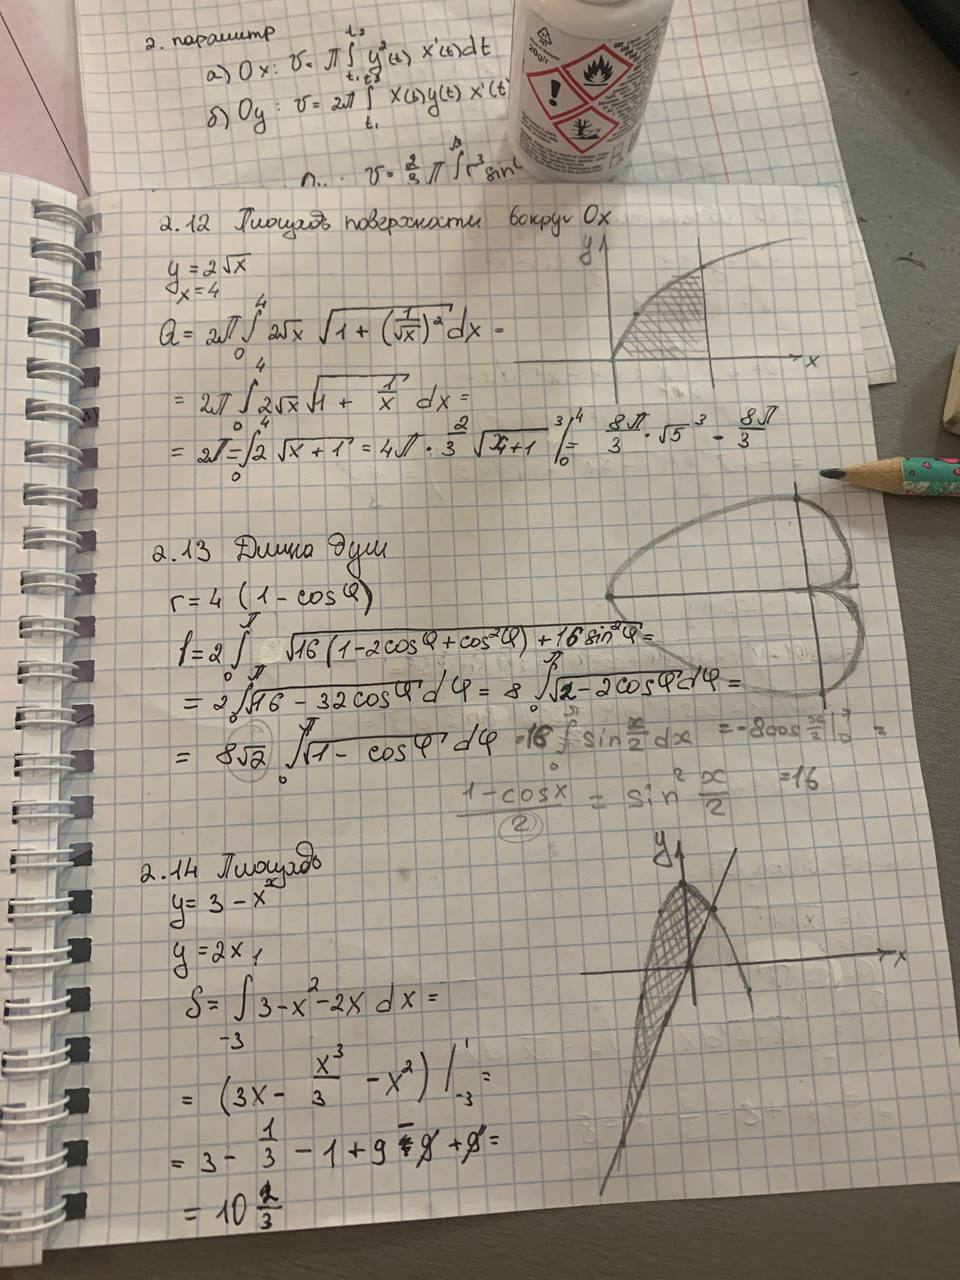 2. параметр
а) Ox: v = π ∫ₜ₁ᵗ² y²(t) x'(t)dt
б) Oy: v = 2π ∫ₜ₁ᵗ² x(t)y(t) x'(t)
v = 2/3 π ∫ r³ sin
20g/r
2.12 Площадь поверхности вокруг Ox
y = 2√x
x = 4
Q = 2π ∫₀⁴ 2√x √(1 + (1/√x)²) dx =
= 2π ∫₀⁴ 2√x √(1 + 1/x) dx =
= 2π ∫₀⁴ 2 √(x + 1) = 4π · 2/3 √(x+1)³ |₀⁴ = 8π/3 · √5³ - 8π/3
y
x
2.13 Длина дуги
r = 4 (1 - cosφ)
l = 2 ∫₀^π √(16(1 - 2cosφ + cos²φ) + 16 sin²φ) =
= 2 ∫₀^π √(16 - 32cosφ) dφ = 8 ∫₀^π √(2 - 2cosφ) dφ =
= 8√2 ∫₀^π √(1 - cosφ) dφ = 18 ∫₀^π sin x/2 dx = -8cos x/2 |₀^π =
(1 - cosx)/2 = sin² x/2 =16
2.14 Площадь
y = 3 - x²
y = 2x
S = ∫₋₃¹ 3 - x² - 2x dx =
= (3x - x³/3 - x²) |₋₃¹ =
= 3 - 1/3 - 1 + 9 - 9 + 9 =
= 10 2/3
y
x